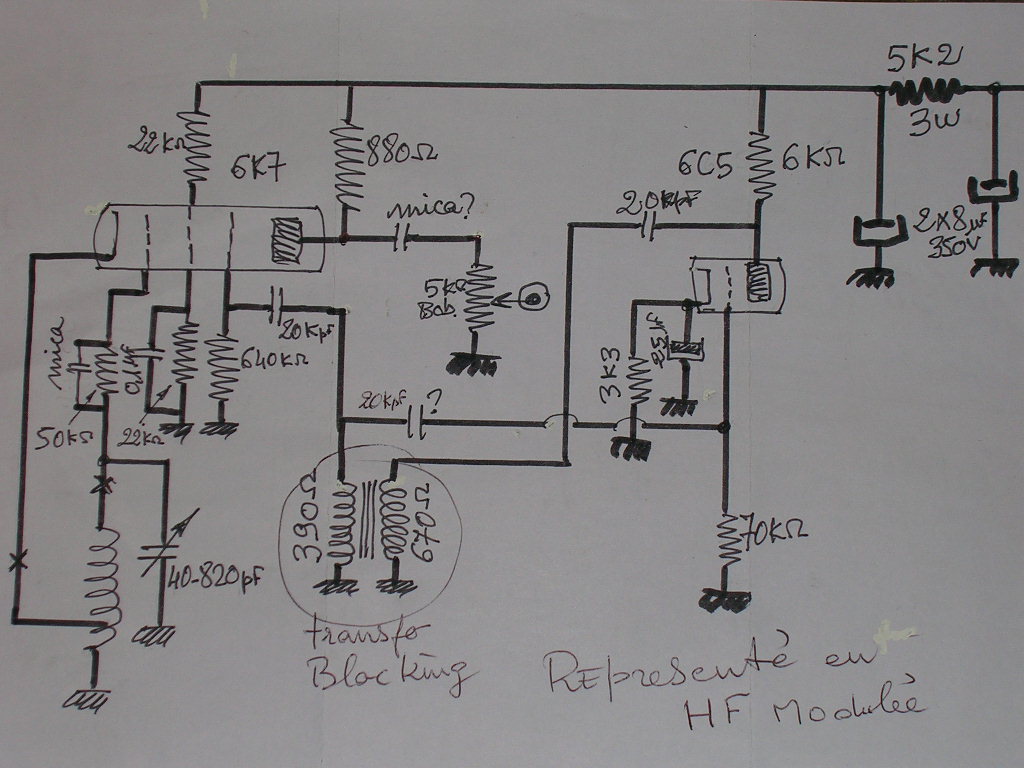 5K2
3W
22KΩ
6K7
880Ω
6C5
6KΩ
mica?
20KpF
2X8µF
350V
5KΩ
Bob.
mica
0,1µF
20KpF
640KΩ
3K3
25µF
20KpF ?
50KΩ
22KΩ
390Ω
670Ω
70KΩ
40-820pF
transfo
Blocking
Representè en
HF Modulèe